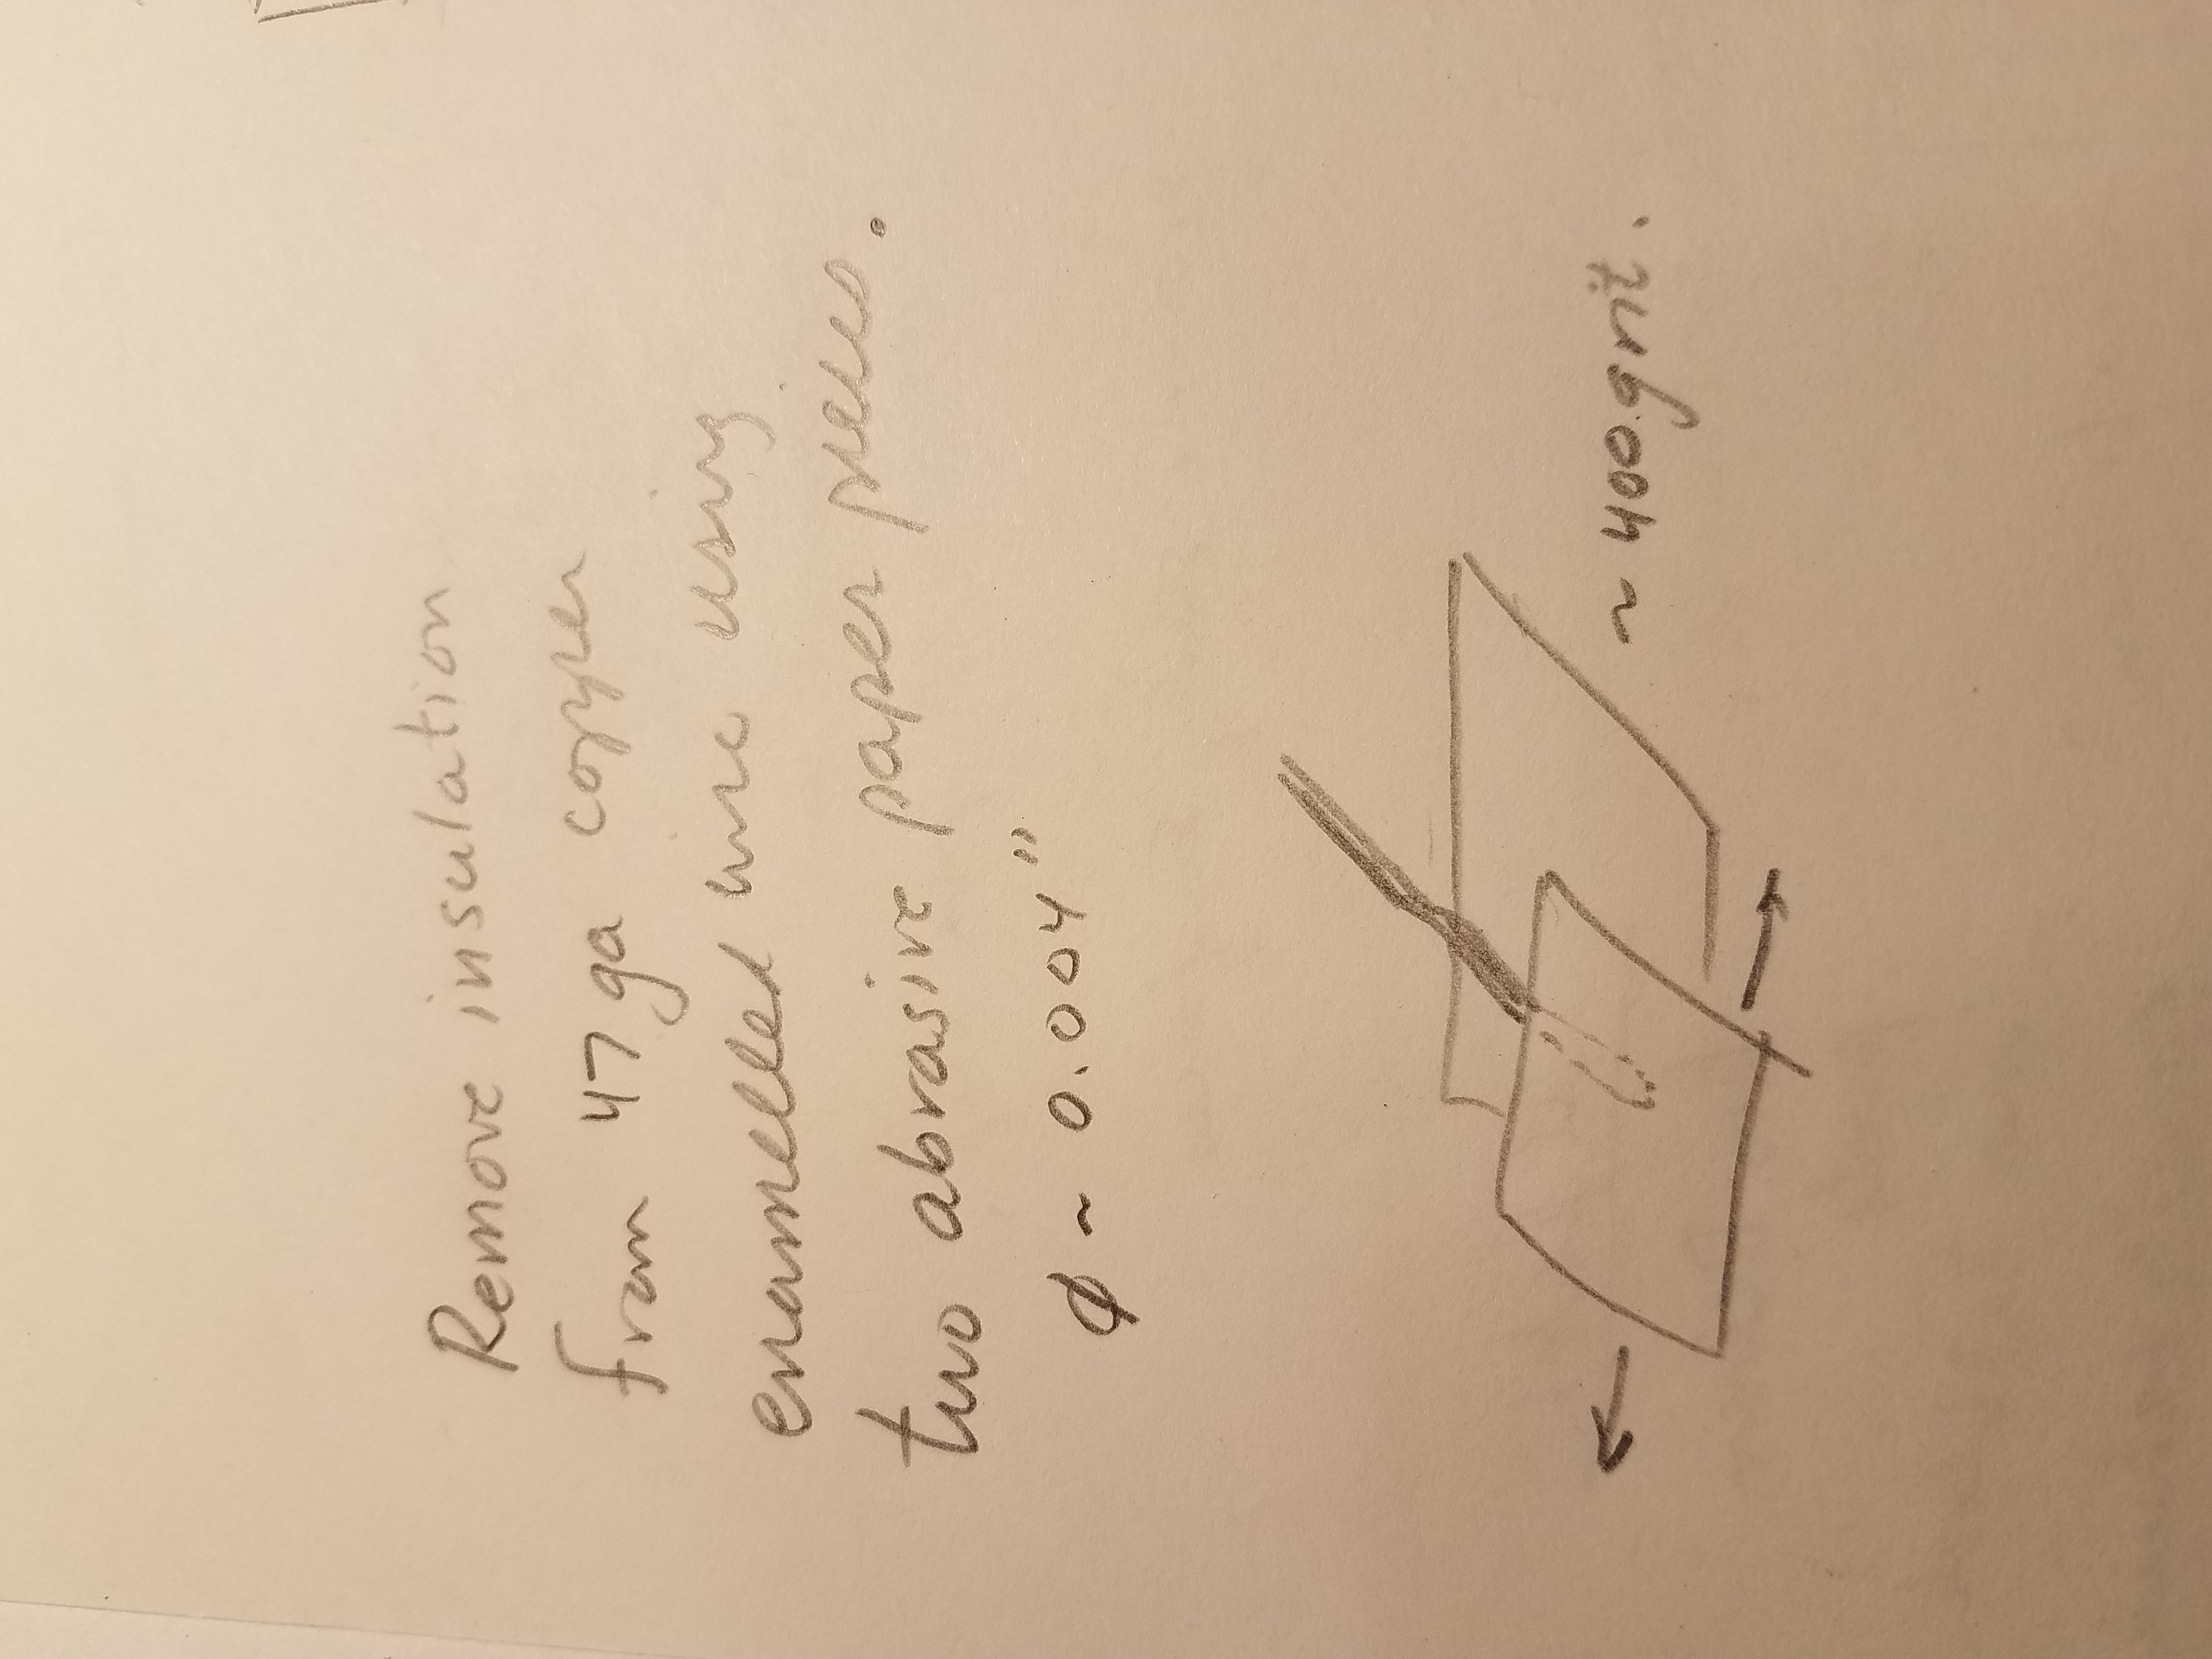 Remove insulation
from 47 ga copper
enamelled wire using
two abrasive paper pieces.
ϕ ~ 0.004"
~ 400 grit.